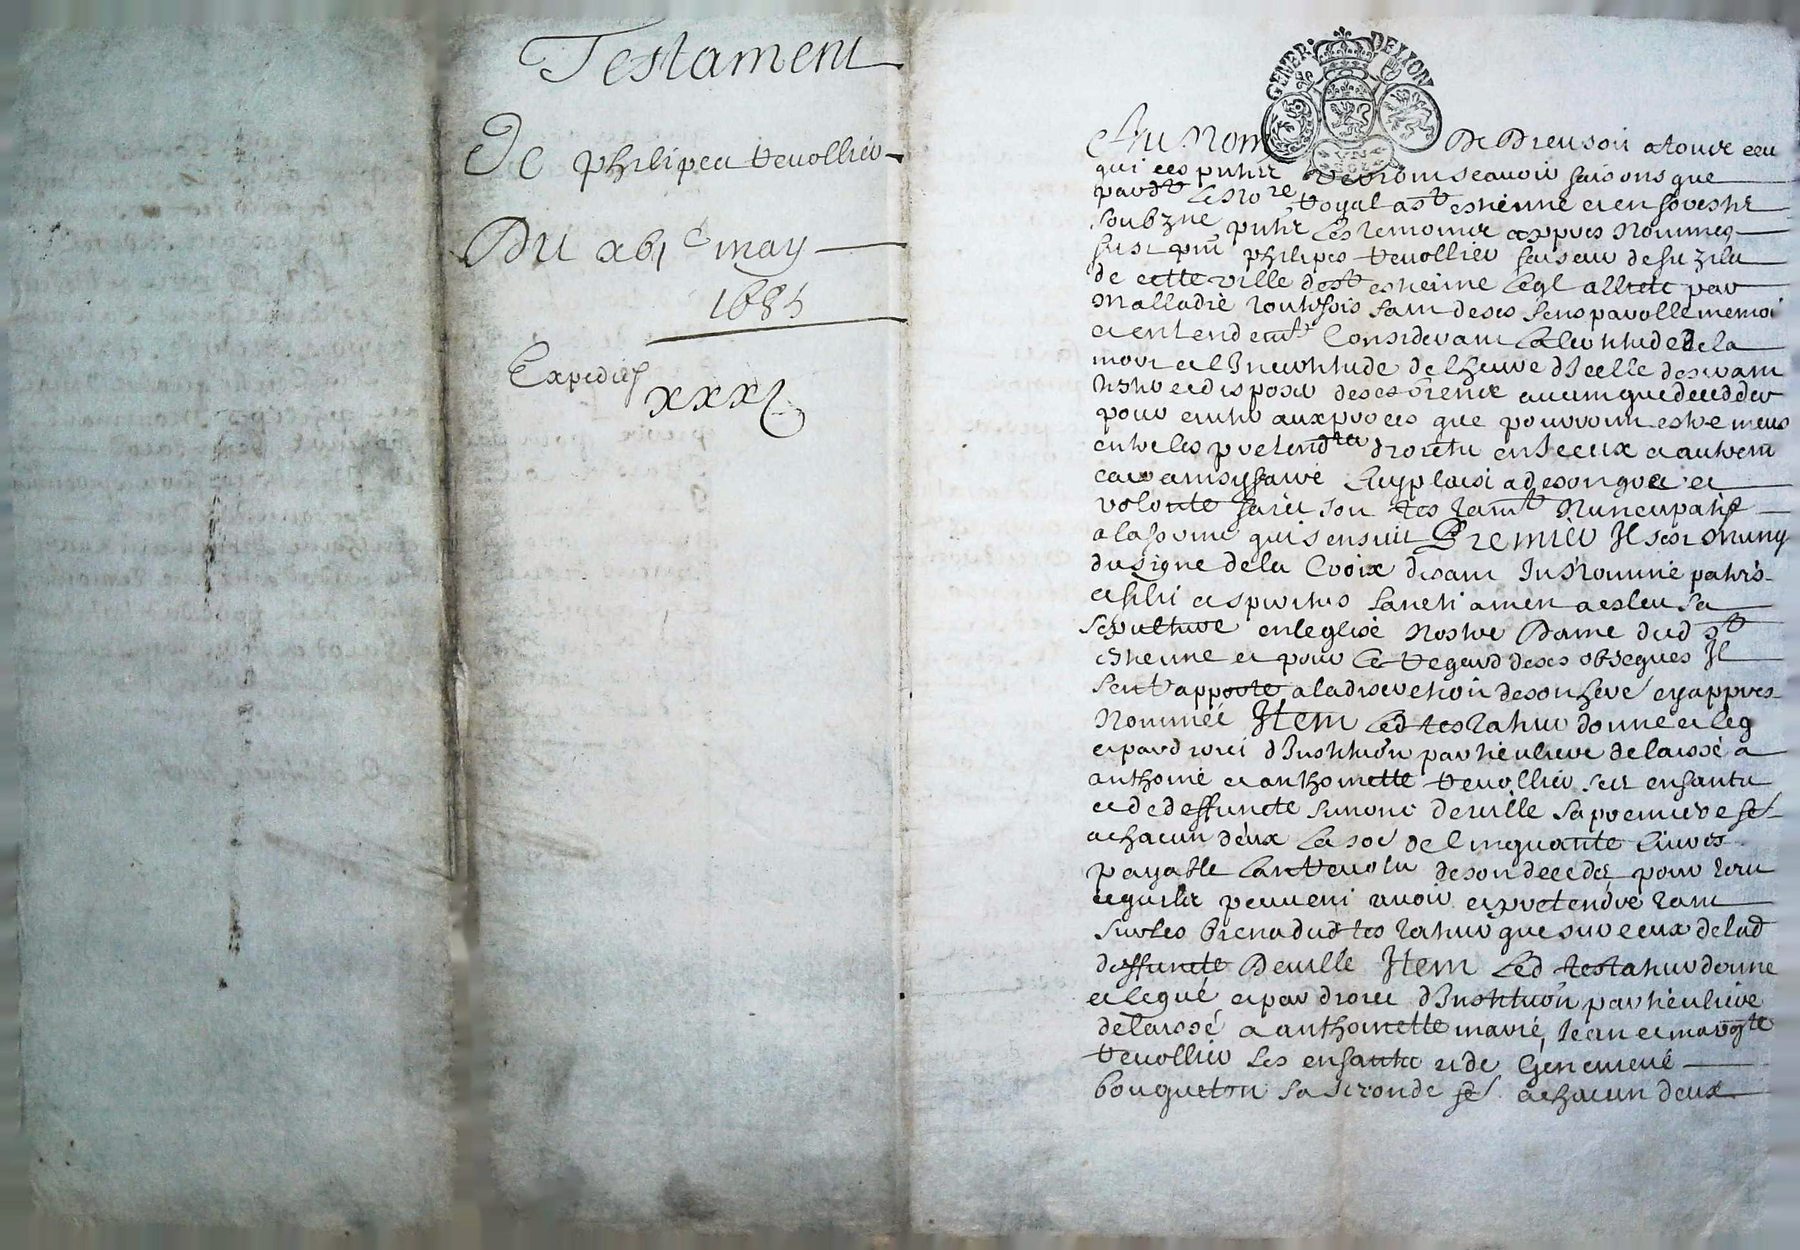 Testament
De philipes Revollier
Du xbi^e may
1685
Expedié
xxxi
GENER. DE LYON
VN
Au Nom De Dieu soit a tous ceu
qui ces pntes verront scavoir faisons que
pard^t le No^re Royal a s^t estienne en forestz
soubzné pntz les temoins appres nommes
fust pnt philipes Revollier faiseur de fuzilz
de cette ville de s^t estienne leql allité par
malladie toutesfois sain de ses sens parolle memoi
et entendem^t Considerant la certitude de la
mort et l'Incertitude de l'heure d'Icelle desirant
tister et disposer de ses biens avant que deceder
pour eviter aux proces que pourroint estre meus
entre les pretend^tes droictz en Iceux et autrem^t
car ainsy faire luy plaist a de son gré et
volonté faict son testam^t Nuncupatif
a la forme qui s'ensuit Premier Il s'est muny
du signe de la Croix disant In Nomine patris
et filii et spiritus sancti amen a esleu sa
sepulture en l'eglise Nostre Dame dud s^t
estienne et pour le regard de ses obseques Il
s'en rapporte a la discretion de son here eyappres
Nommée Item led testateur donne et leg
et par droict d'Institution particuliere delaissé a
anthoine et anthoinette Revollier ses enfantz
et de deffuncte simone deville sa premiere fe
a chacun d'eux la soe de Cinquante livres
payable l'an revolu de son decedz pour tout
ce qu'ilz peuvent avoir et pretendre tant
sur les biens dud testateur que sur ceux de lad
deffuncte Deville Item led testateur donne
et legué et par droict d'Institution particuliere
delaissé a anthoinette marie, Jean et marg^te
Revollier ses enfantz et de Genevieve
bouqueton sa seconde fe a chacun d'eux